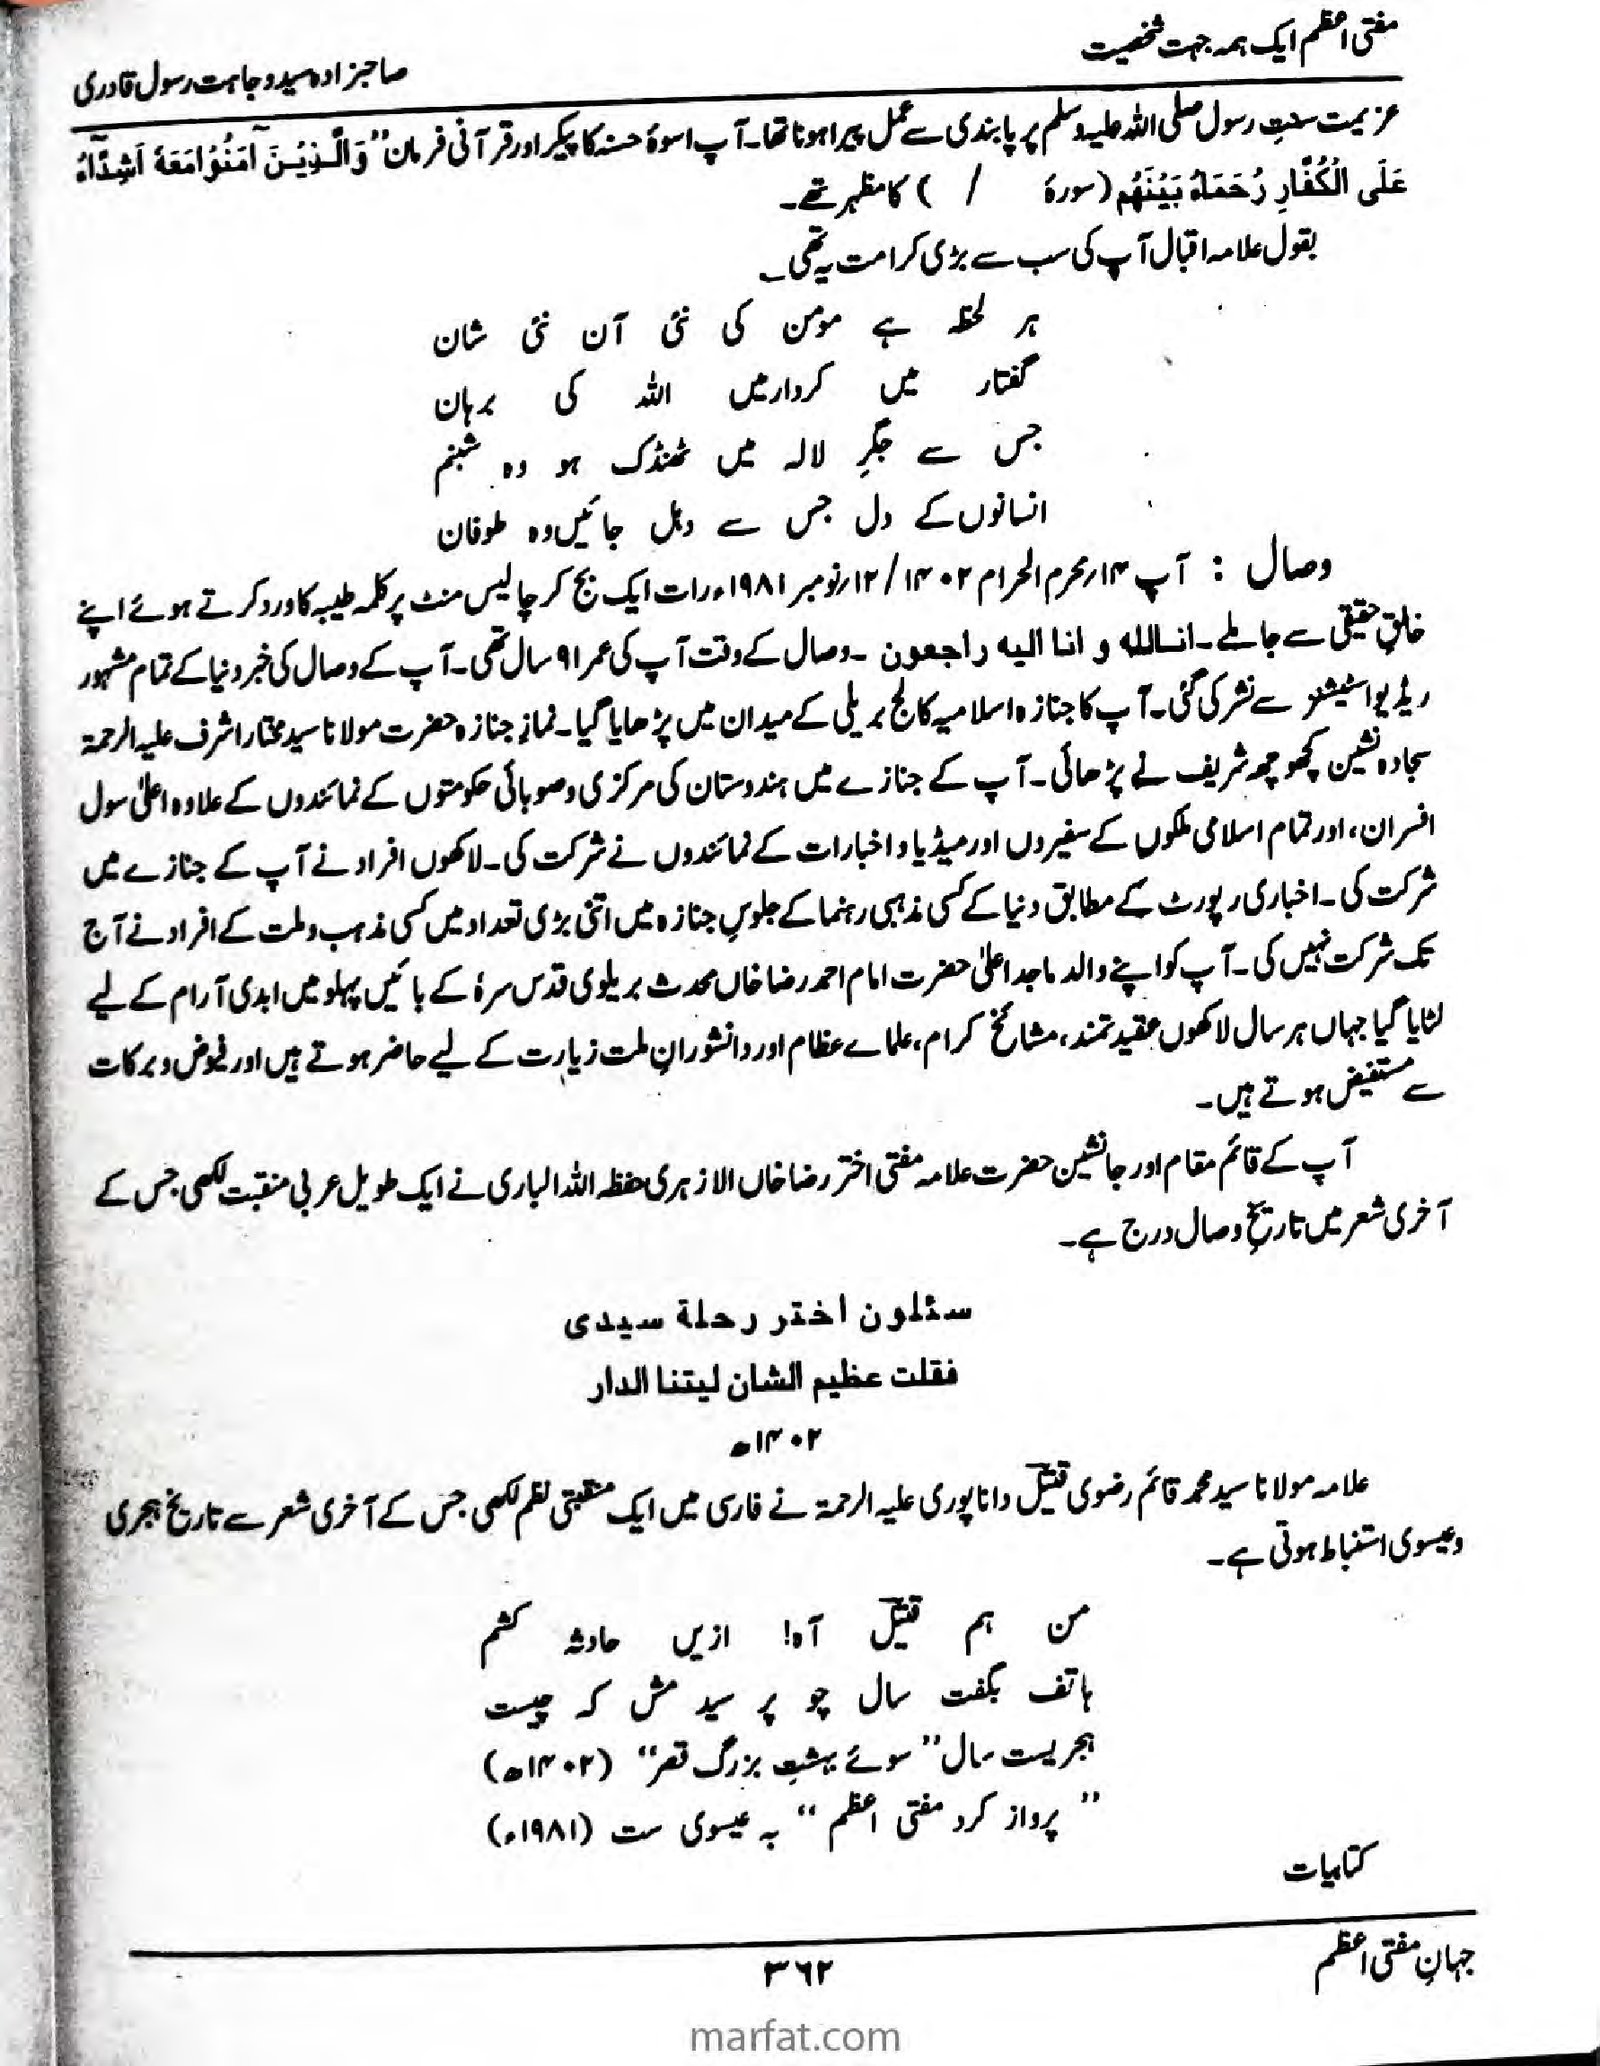 مفتی اعظم ایک ہمہ جہت شخصیت
صاحبزادہ سید وجاہت رسول قادری
عزیمت سنتِ رسول صلی اللہ علیہ وسلم پر پابندی سے عمل پیرا ہونا تھا۔ آپ اسوۂ حسنہ کا پیکر اور قرآنی فرمان ”وَالَّذِیْنَ آمَنُوْا مَعَهٗ اَشِدَّآءُ
عَلَی الْکُفَّارِ رُحَمَآءُ بَیْنَهُم (سورۂ / ) کا مظہر تھے۔
بقول علامہ اقبال آپ کی سب سے بڑی کرامت یہ تھی۔
ہر لحظہ ہے مومن کی نئی آن نئی شان
گفتار میں کردار میں اللہ کی برہان
جس سے جگرِ لالہ میں ٹھنڈک ہو وہ شبنم
انسانوں کے دل جس سے دہل جائیں وہ طوفان
وصال : آپ ۱۴؍محرم الحرام ۱۴۰۲ / ۱۲؍نومبر ۱۹۸۱ء رات ایک بج کر چالیس منٹ پر کلمہ طیبہ کا ورد کرتے ہوئے اپنے
خالقِ حقیقی سے جا ملے۔ انا للہ و انا الیہ راجعون ۔ وصال کے وقت آپ کی عمر ۹۱ سال تھی۔ آپ کے وصال کی خبر دنیا کے تمام مشہور
ریڈیو اسٹیشنز سے نشر کی گئی۔ آپ کا جنازہ اسلامیہ کالج بریلی کے میدان میں پڑھایا گیا۔ نمازِ جنازہ حضرت مولانا سید مختار اشرف علیہ الرحمۃ
سجادہ نشین کچھوچھہ شریف نے پڑھائی۔ آپ کے جنازے میں ہندوستان کی مرکزی و صوبائی حکومتوں کے نمائندوں کے علاوہ اعلیٰ سول
افسران، اور تمام اسلامی ملکوں کے سفیروں اور میڈیا و اخبارات کے نمائندوں نے شرکت کی۔ لاکھوں افراد نے آپ کے جنازے میں
شرکت کی۔ اخباری رپورٹ کے مطابق دنیا کے کسی مذہبی رہنما کے جلوسِ جنازہ میں اتنی بڑی تعداد میں کسی مذہب و ملت کے افراد نے آج
تک شرکت نہیں کی۔ آپ کو اپنے والد ماجد اعلیٰ حضرت امام احمد رضا خاں محدث بریلوی قدس سرۂ کے بائیں پہلو میں ابدی آرام کے لیے
لٹایا گیا جہاں ہر سال لاکھوں عقیدتمند، مشائخ کرام، علمائے عظام اور دانشورانِ ملت زیارت کے لیے حاضر ہوتے ہیں اور فیوض و برکات
سے مستفیض ہوتے ہیں۔
آپ کے قائم مقام اور جانشین حضرت علامہ مفتی اختر رضا خاں الازہری حفظہ اللہ الباری نے ایک طویل عربی منقبت لکھی جس کے
آخری شعر میں تاریخِ وصال درج ہے۔
سئلون اختر رحلة سیدی
فقلت عظیم الشان لیتنا الدار
۱۴۰۲ھ
علامہ مولانا سید محمد قائم رضوی قتیلؔ داناپوری علیہ الرحمۃ نے فارسی میں ایک منقبتی نظم لکھی جس کے آخری شعر سے تاریخ ہجری
وعیسوی استنباط ہوتی ہے۔
من ہم قتیلؔ آہ! ازیں حادثہ کشم
ہاتف بگفت سال چو پر سید مش کہ چیست
ہجریست سال ”سوئے بہشتِ بزرگ قصر“ (۱۴۰۲ھ)
”پرواز کرد مفتی اعظم“ بہ عیسوی ست (۱۹۸۱ء)
کتابیات
جہانِ مفتی اعظم
۳۶۲
marfat.com